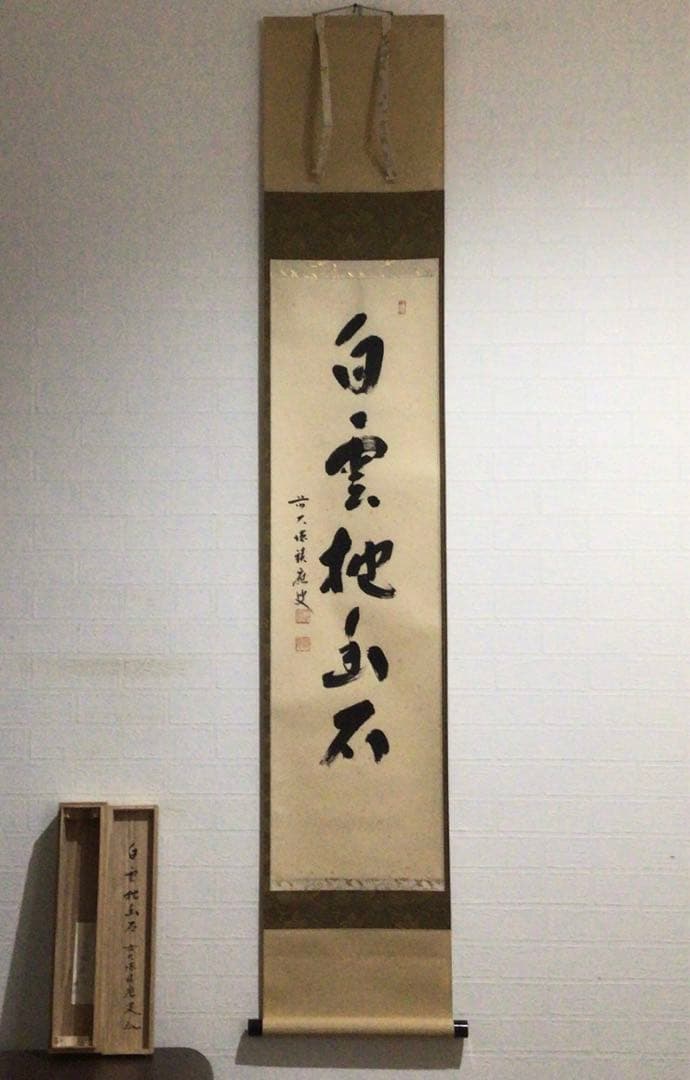 白雲抱幽石
前大徳積應叟
白雲抱幽石 前大徳積應叟